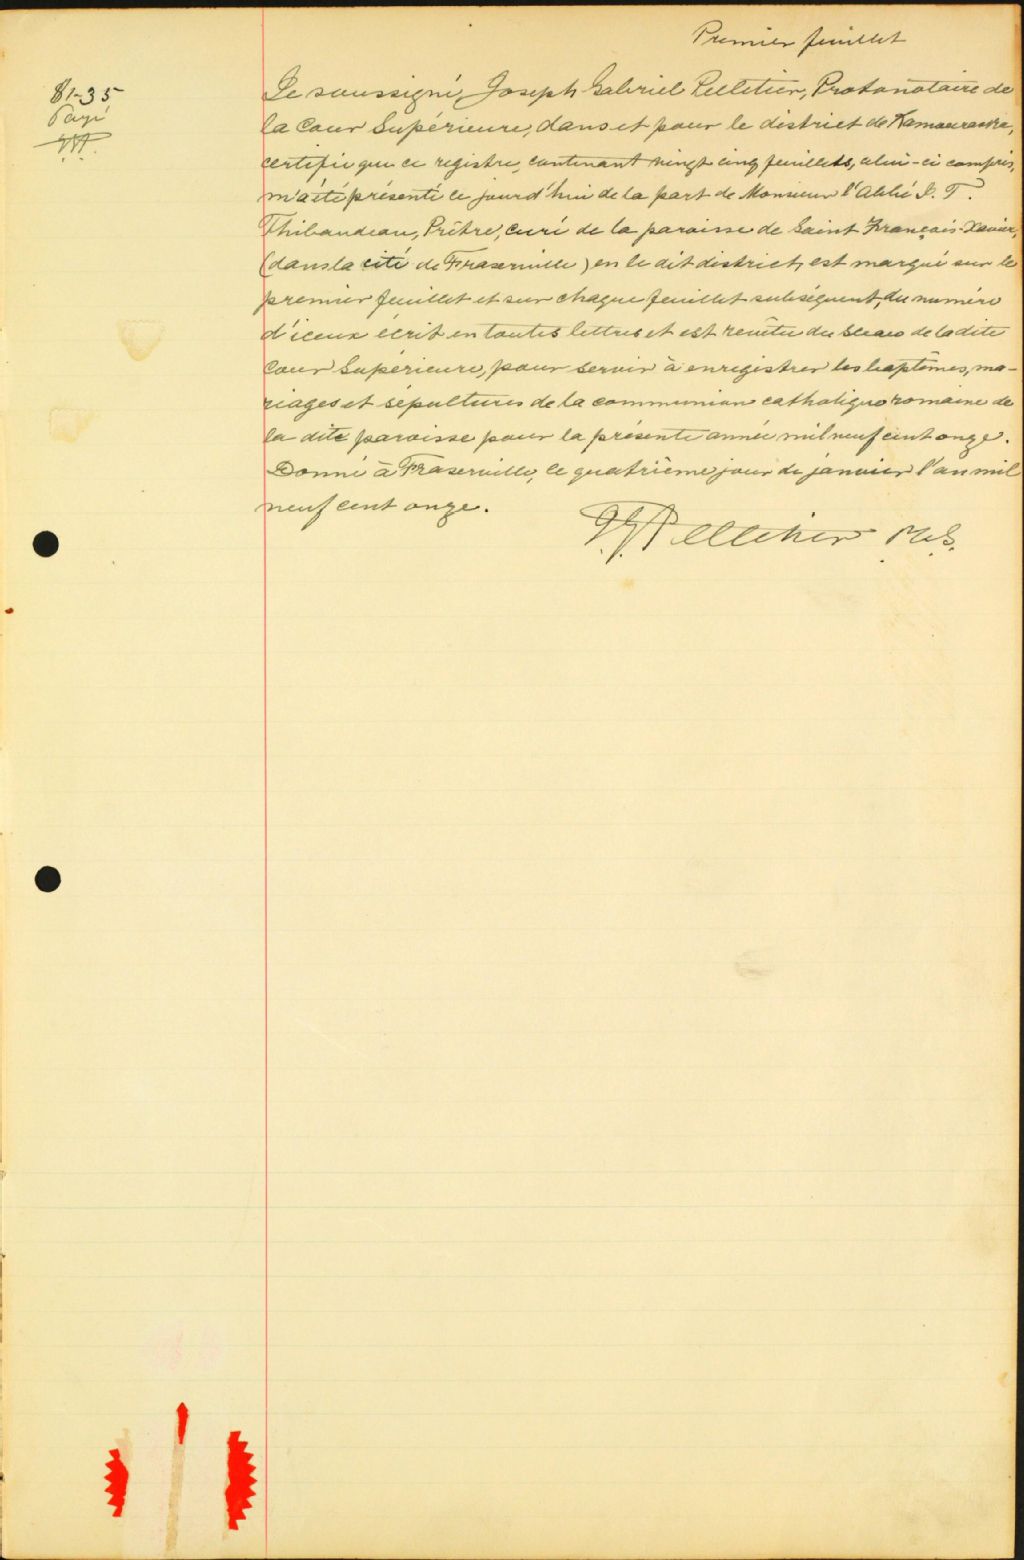 Premier feuillet
$1-35
Payé
Le soussigné, Joseph Gabriel Pelletier, Protonotaire de
la Cour Supérieure, dans et pour le district de Kamouraska,
certifie que ce registre, contenant vingt cinq feuillets, celui-ci compris,
m'a été présenté ce jourd'hui de la part de Monsieur l'Abbé J. T.
Thibaudeau, Prêtre, curé de la paroisse de Saint François-Xavier,
(dans la cité de Fraserville) en le dit district, est marqué sur le
premier feuillet et sur chaque feuillet subséquent, du numéro
d'iceux écrit en toutes lettres et est revêtu du sceau de la dite
Cour Supérieure, pour servir à enregistrer les baptêmes, ma-
riages et sépultures de la communion catholique romaine de
la dite paroisse pour la présente année mil neuf cent onze.
Donné à Fraserville, le quatrième jour de janvier l'an mil
neuf cent onze.
J. G. Pelletier P.C.S.